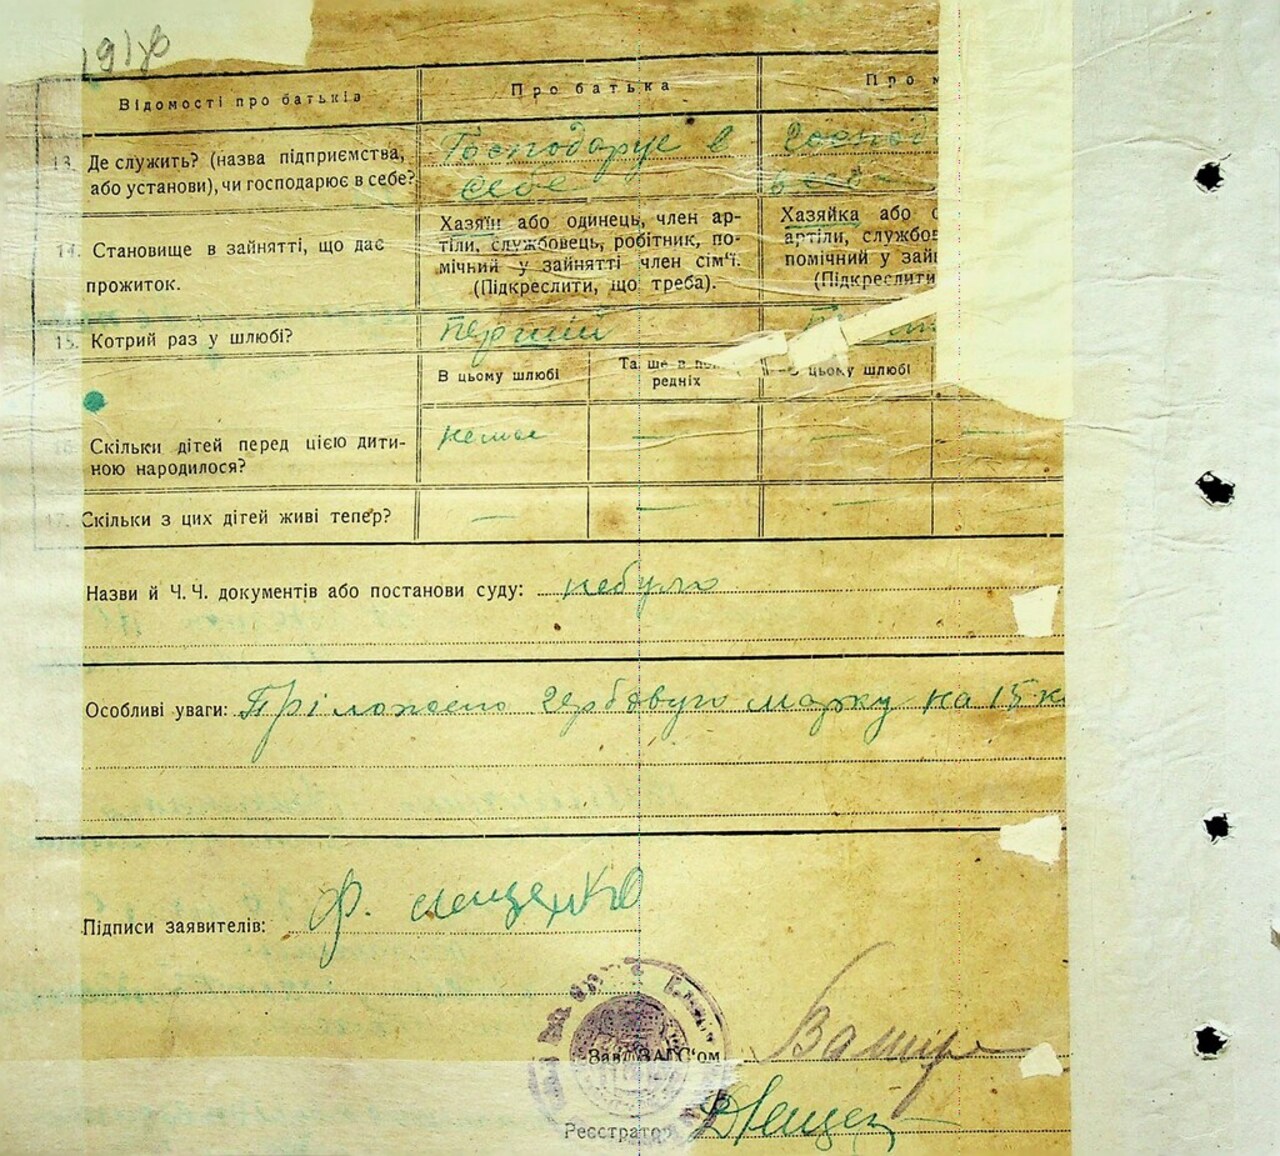 Відомості про батьків
Про батька
Про м
13. Де служить? (назва підприємства,
або установи), чи господарює в себе?
Господарує в
себе
господ
в себ
14. Становище в зайнятті, що дає
прожиток.
Хазяїн або одинець, член ар-
тіли, службовець, робітник, по-
мічний у зайнятті член сім'ї.
(Підкреслити, що треба).
Хазяйка або о
артіли, службов
помічний у зай
(Підкреслити
15. Котрий раз у шлюбі?
перший
В цьому шлюбі
редніх
цьому шлюбі
16. Скільки дітей перед цією дити-
ною народилося?
немає — — —
17. Скільки з цих дітей живі тепер?
— — —
Назви й Ч. Ч. документів або постанови суду: небуло
Особливі уваги: Пріложено гербовую марку на 15 к
Підписи заявителів: Ф. Лещенко
Зав. ЗАГС'ом
Реєстратор